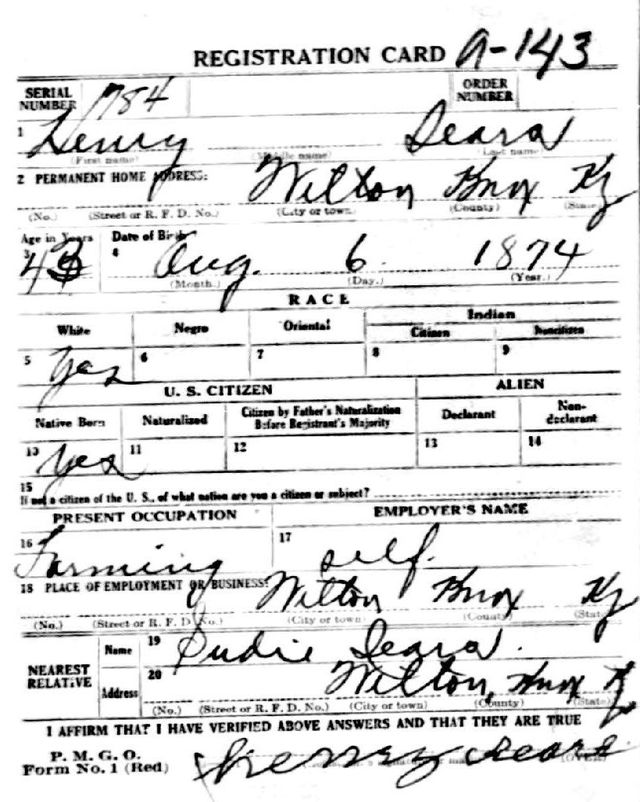 REGISTRATION CARD A-143
SERIAL NUMBER 1784 ORDER NUMBER
1 Henry Sears
(First name) (Middle name) (Last name)
2 PERMANENT HOME ADDRESS: Wilton Knox Ky
(No.) (Street or R. F. D. No.) (City or town) (County) (State)
Age in Years Date of Birth
3 43 4 Aug. 6 1874
(Month.) (Day.) (Year.)
RACE
White Negro Oriental Indian
Citizen Noncitizen
5 Yes 6 7 8 9
U. S. CITIZEN ALIEN
Native Born Naturalized Citizen by Father's Naturalization Before Registrant's Majority Declarant Non-declarant
10 Yes 11 12 13 14
15
If not a citizen of the U. S., of what nation are you a citizen or subject?
PRESENT OCCUPATION EMPLOYER'S NAME
16 Farming 17 self.
18 PLACE OF EMPLOYMENT OR BUSINESS: Wilton Knox Ky
(No.) (Street or R. F. D. No.) (City or town) (County) (State)
NEAREST RELATIVE Name 19 Sudie Sears.
Address 20 Wilton, Knox Ky
(No.) (Street or R. F. D. No.) (City or town) (County) (State)
I AFFIRM THAT I HAVE VERIFIED ABOVE ANSWERS AND THAT THEY ARE TRUE
P. M. G. O.
Form No. 1 (Red) Henry Sears (OVER)